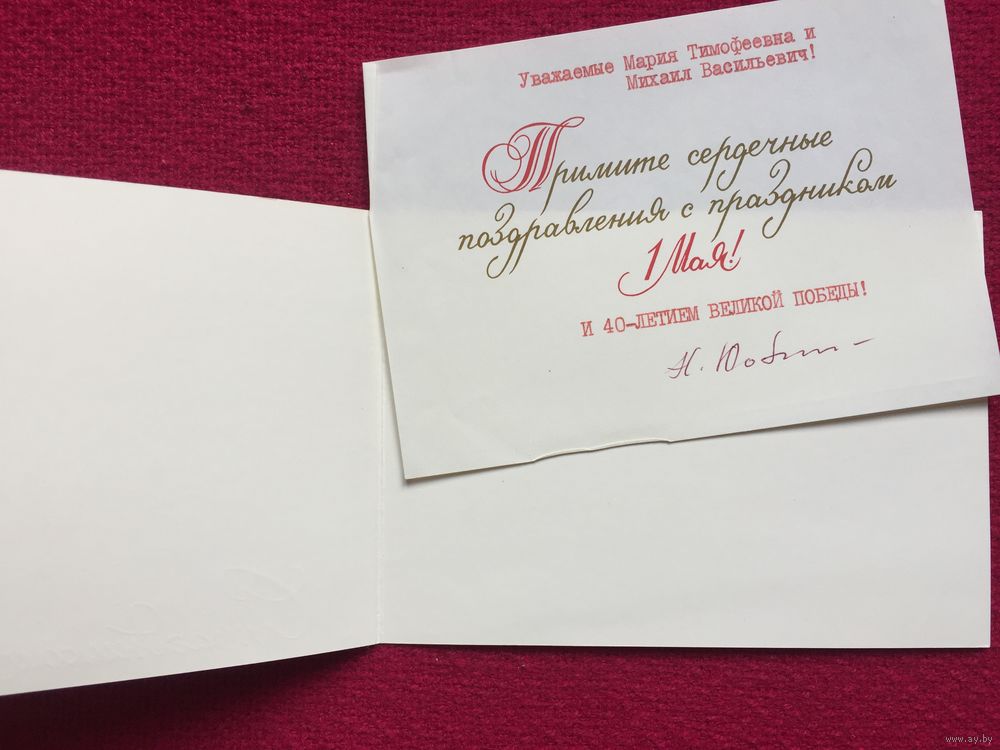 Уважаемые Мария Тимофеевна и
Михаил Васильевич!
Примите сердечные
поздравления с праздником
1 Мая!
И 40-ЛЕТИЕМ ВЕЛИКОЙ ПОБЕДЫ!
www.ay.by